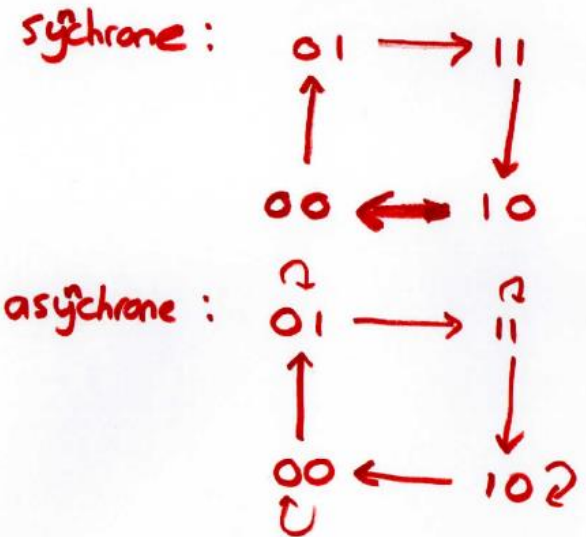 sychrone : 01 → 11
00 ↔ 10
asychrone : 01 → 11
00 ← 10